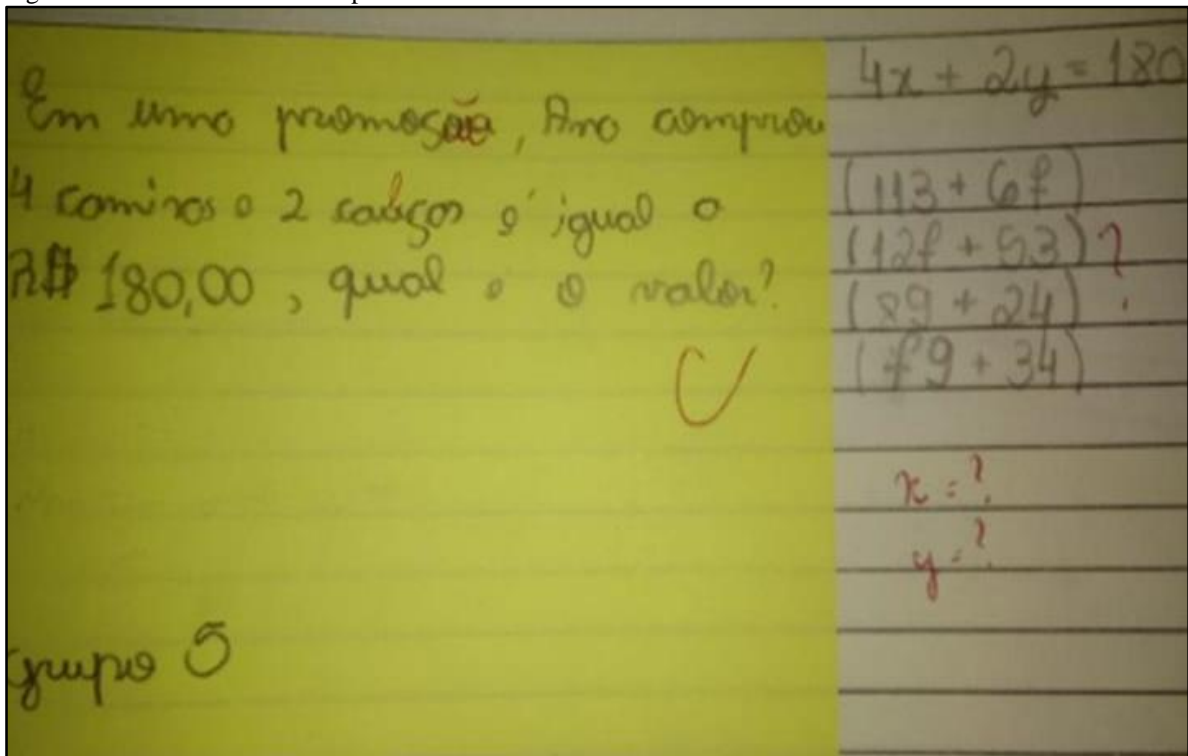 Em uma promoção, Ana comprou
4 camisas e 2 calças é igual a
R$ 180,00, qual é o valor?
Grupo 5
4x + 2y = 180
(113 + 67)
(127 + 53) ?
(89 + 24)
(79 + 34)
x = ?
y = ?